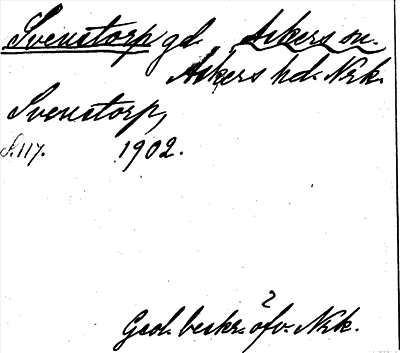 Svenstorp gd. Askers sn.
Askers hd. Nrk.
Svenstorp,
S. 117. 1902.
Geol. beskr. öfv. Nrk.